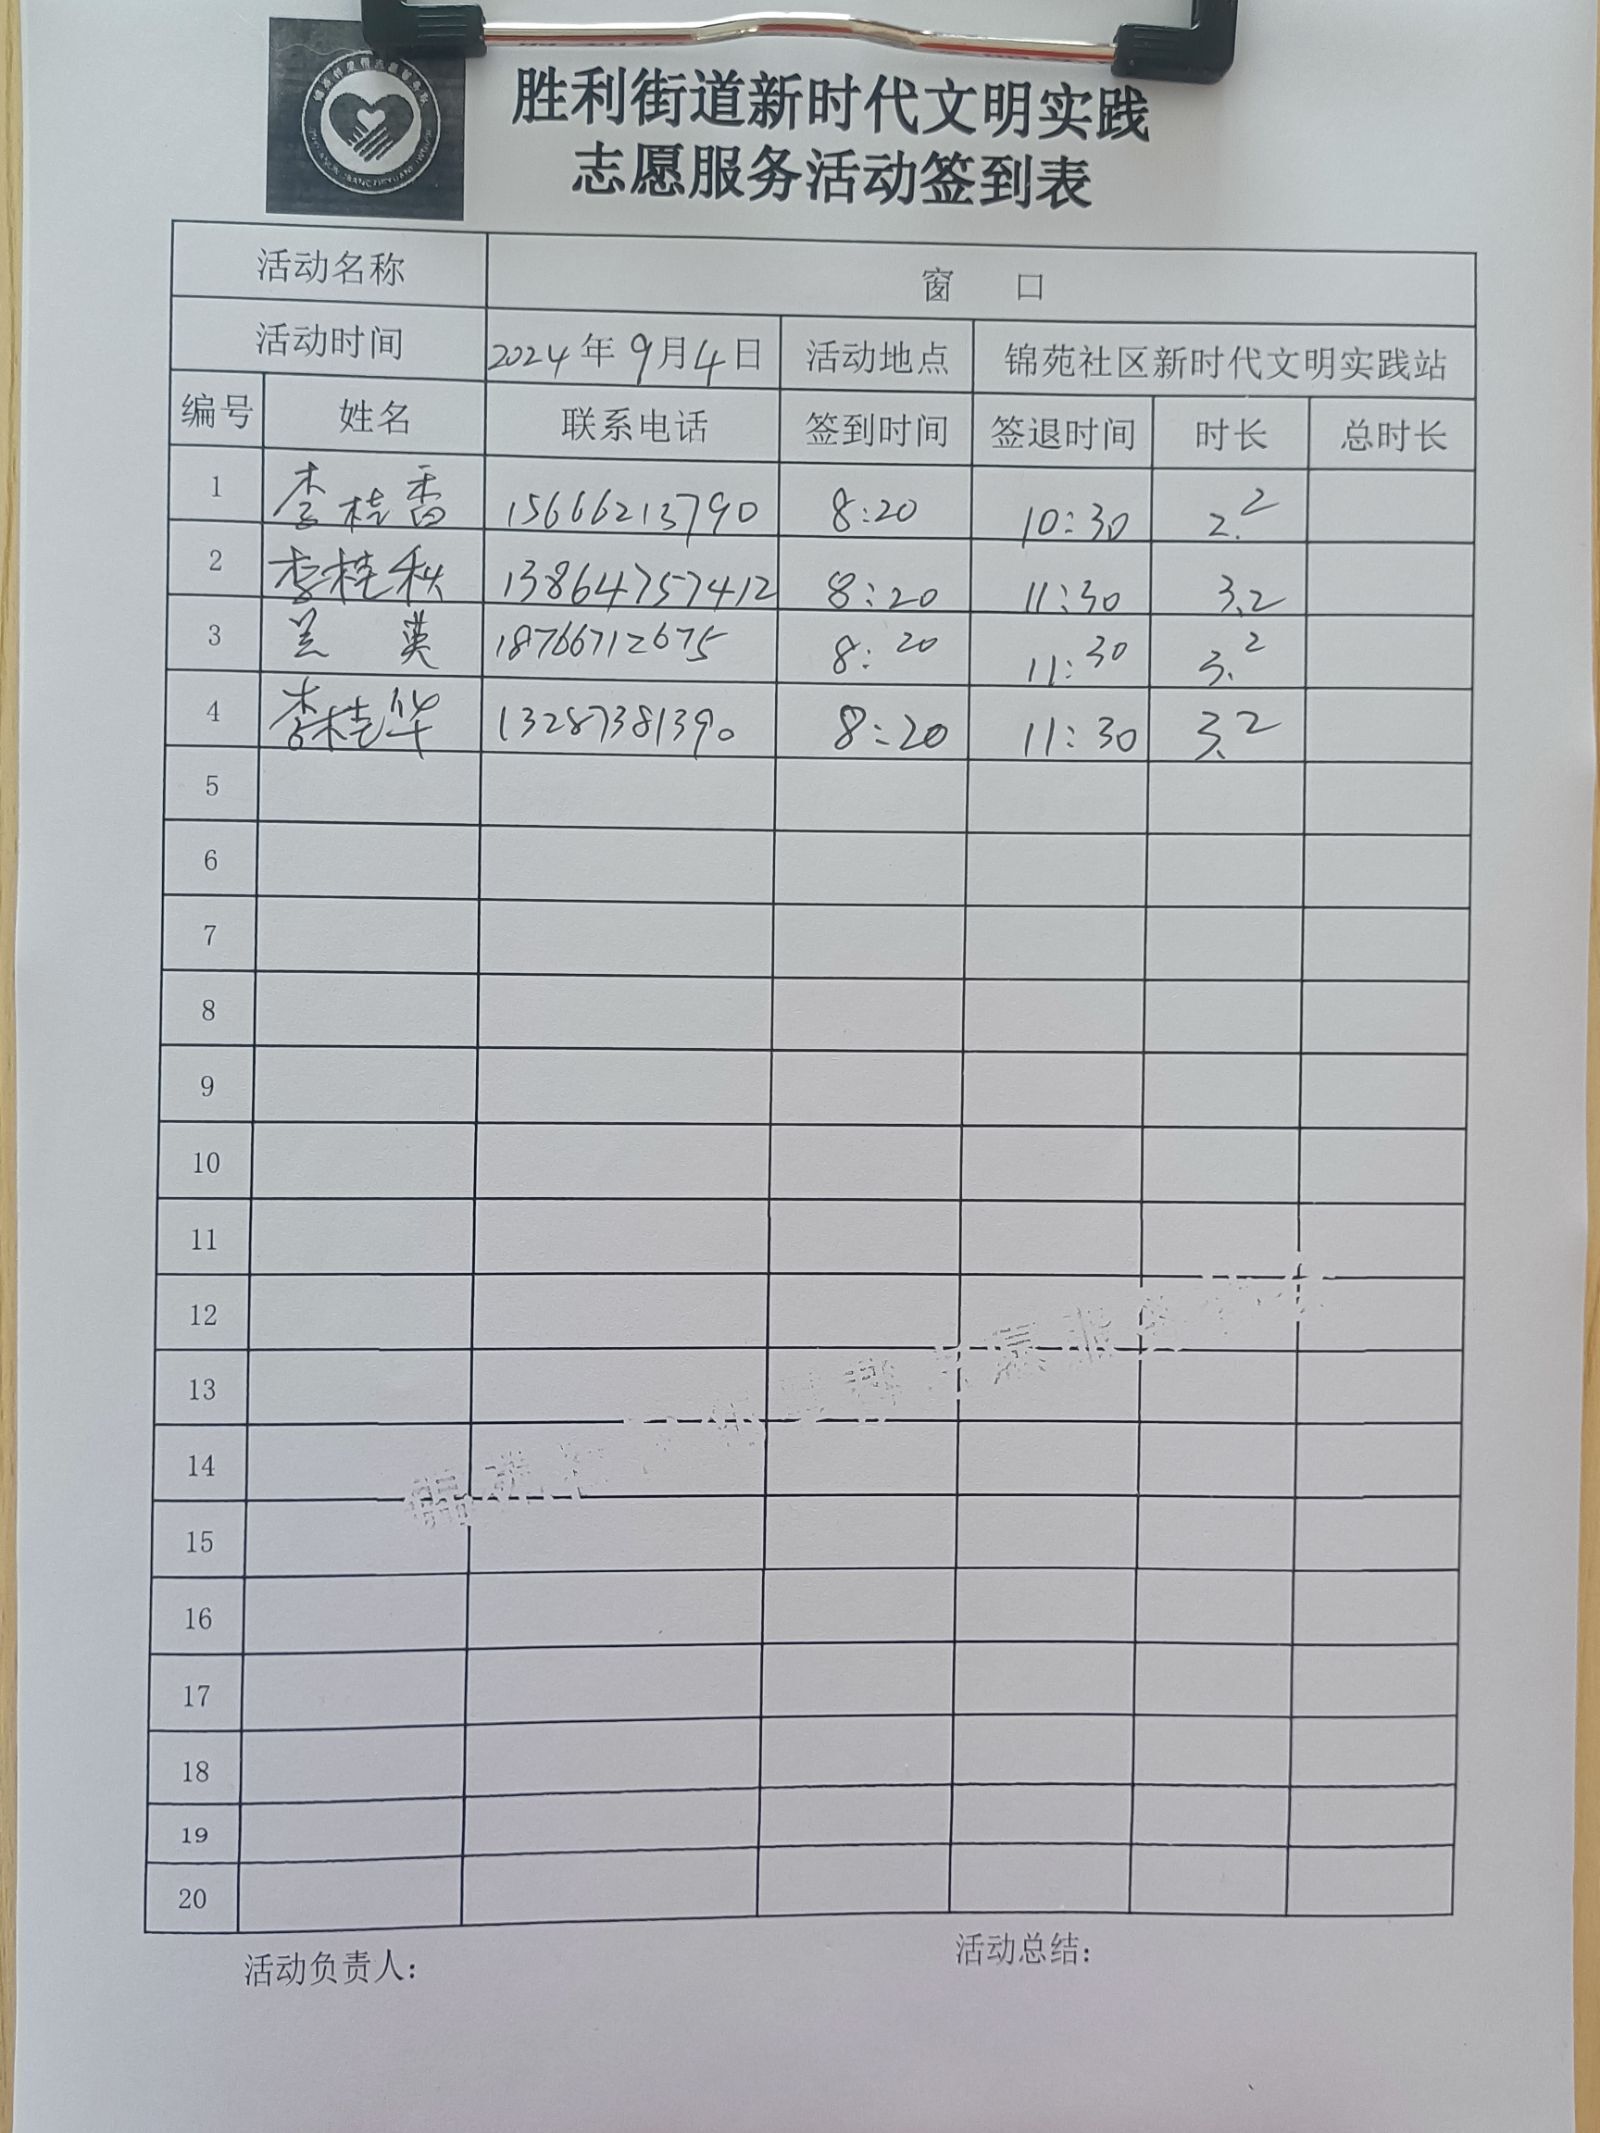 胜利街道新时代文明实践
志愿服务活动签到表
活动名称 窗 口
活动时间 2024年9月4日 活动地点 锦苑社区新时代文明实践站
编号 姓名 联系电话 签到时间 签退时间 时长 总时长
1 李桂香 15666213790 8:20 10:30 2.2
2 李桂秋 13864757412 8:20 11:30 3.2
3 兰英 18766712675 8:20 11:30 3.2
4 李桂华 13287381390 8:20 11:30 3.2
5
6
7
8
9
10
11
12
13
14
15
16
17
18
19
20
活动负责人: 活动总结: